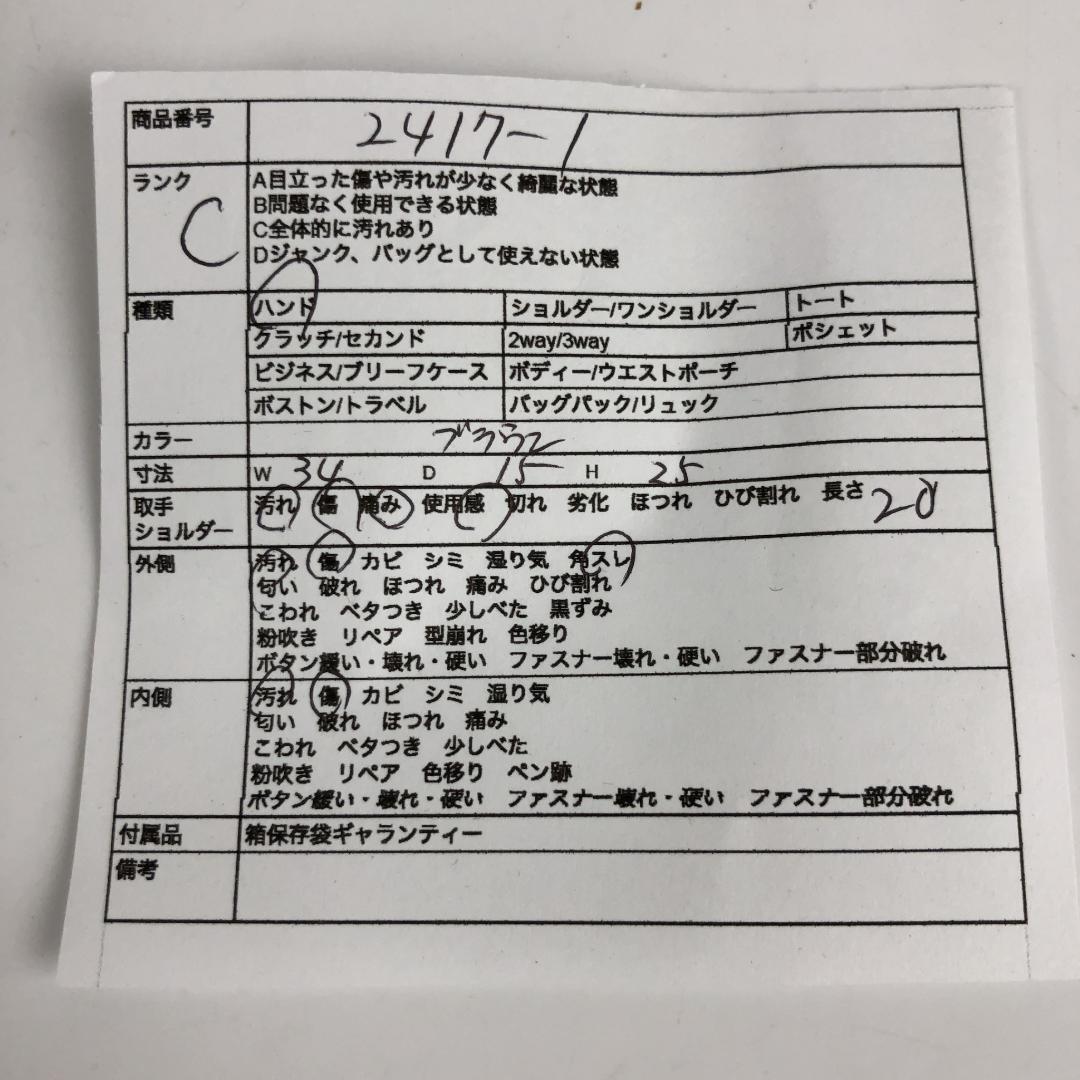 商品番号 2417-1
ランク A目立った傷や汚れが少なく綺麗な状態
B問題なく使用できる状態
C C全体的に汚れあり
Dジャンク、バッグとして使えない状態
種類 ハンド ショルダー/ワンショルダー トート
クラッチ/セカンド 2way/3way ポシェット
ビジネス/ブリーフケース ボディー/ウエストポーチ
ボストン/トラベル バッグパック/リュック
カラー ブラウン
寸法 W 34 D 15 H 25
取手 汚れ 傷 痛み 使用感 切れ 劣化 ほつれ ひび割れ 長さ 20
ショルダー
外側 汚れ 傷 カビ シミ 湿り気 角スレ
匂い 破れ ほつれ 痛み ひび割れ
こわれ ベタつき 少しべた 黒ずみ
粉吹き リペア 型崩れ 色移り
ボタン緩い・壊れ・硬い ファスナー壊れ・硬い ファスナー部分破れ
内側 汚れ 傷 カビ シミ 湿り気
匂い 破れ ほつれ 痛み
こわれ ベタつき 少しべた
粉吹き リペア 色移り ペン跡
ボタン緩い・壊れ・硬い ファスナー壊れ・硬い ファスナー部分破れ
付属品 箱保存袋ギャランティー
備考